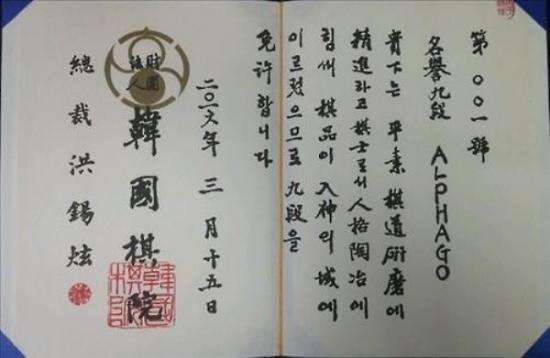 第〇〇一號
名譽九段 ALPHAGO
貴下는 平素 棋道硏磨에
精進하고 棋士로서 人格陶冶에
힘써 棋品이 入神의 域에
이르렀으므로 九段을
免許합니다
二〇一六年 三月十五日
財團
法人
韓國棋院
總裁 洪錫炫